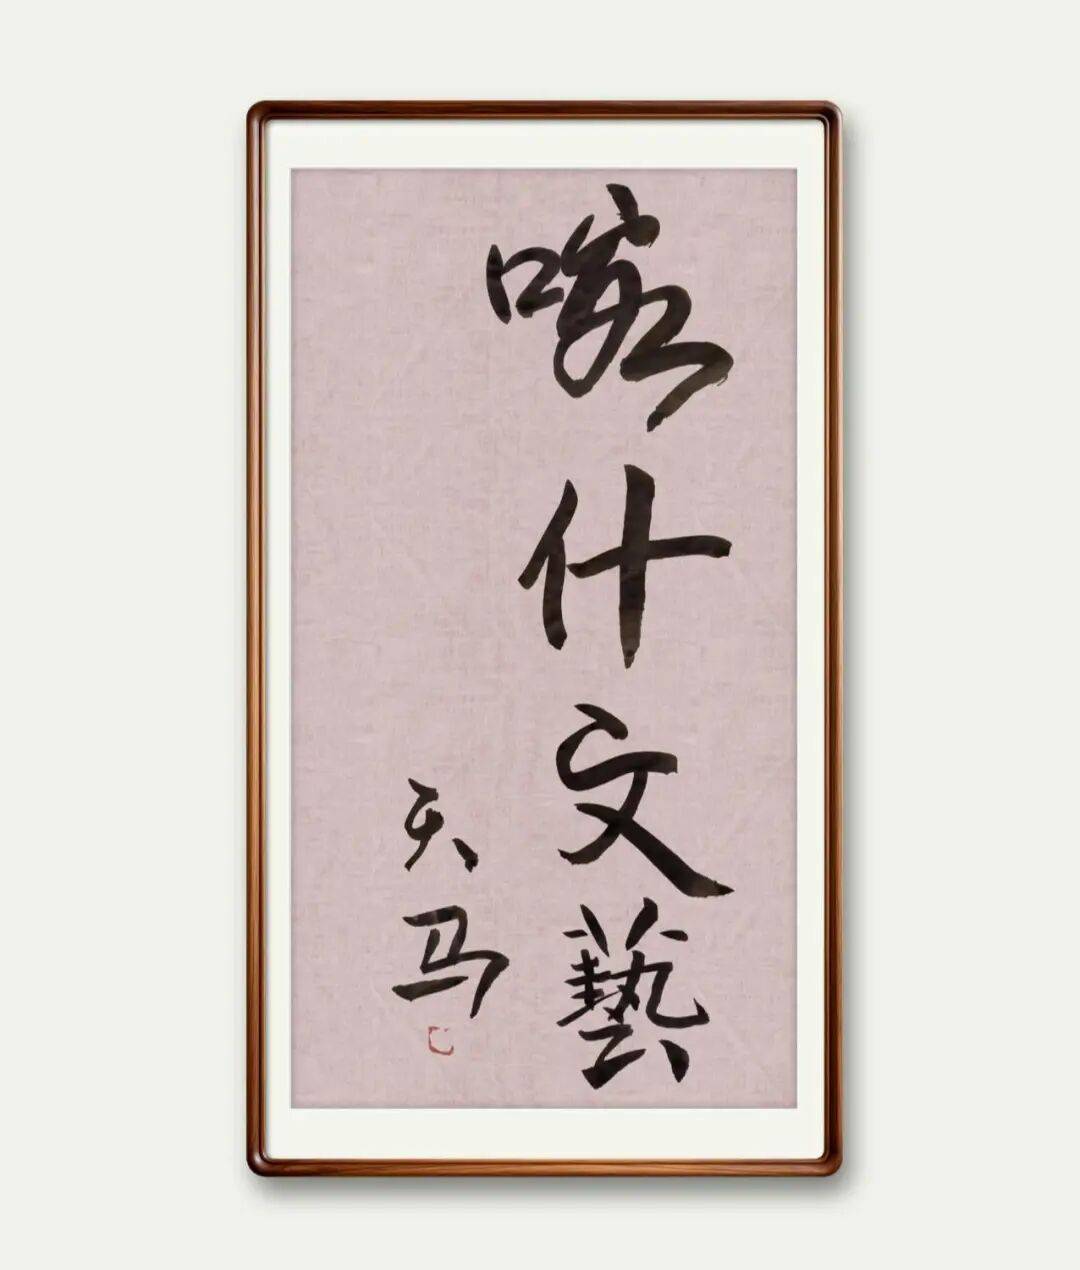 喀什文藝
天马